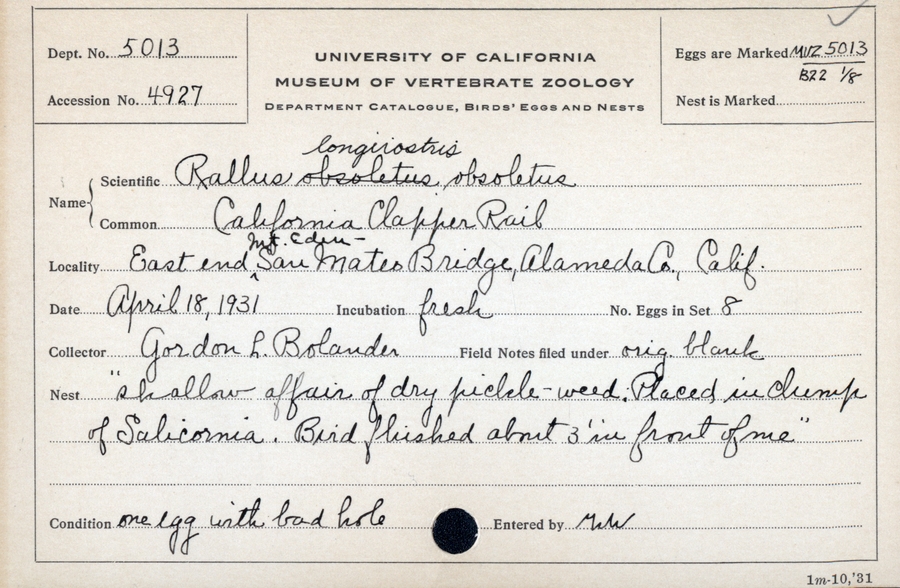 Dept. No. 5013
Accession No. 4927
UNIVERSITY OF CALIFORNIA
MUSEUM OF VERTEBRATE ZOOLOGY
DEPARTMENT CATALOGUE, BIRDS' EGGS AND NESTS
Eggs are Marked MVZ 5013
B22 1/8
Nest is Marked
longirostris
Name { Scientific Rallus obsoletus obsoletus
Common California Clapper Rail
Mt. Eden-
Locality East end ^ San Mateo Bridge, Alameda Co., Calif.
Date April 18, 1931 Incubation fresh No. Eggs in Set 8
Collector Gordon L. Bolander Field Notes filed under orig. blank
Nest "shallow affair of dry pickle-weed. Placed in clump
of Salicornia. Bird flushed about 3' in front of me"
Condition one egg with bad hole Entered by
1m-10,'31